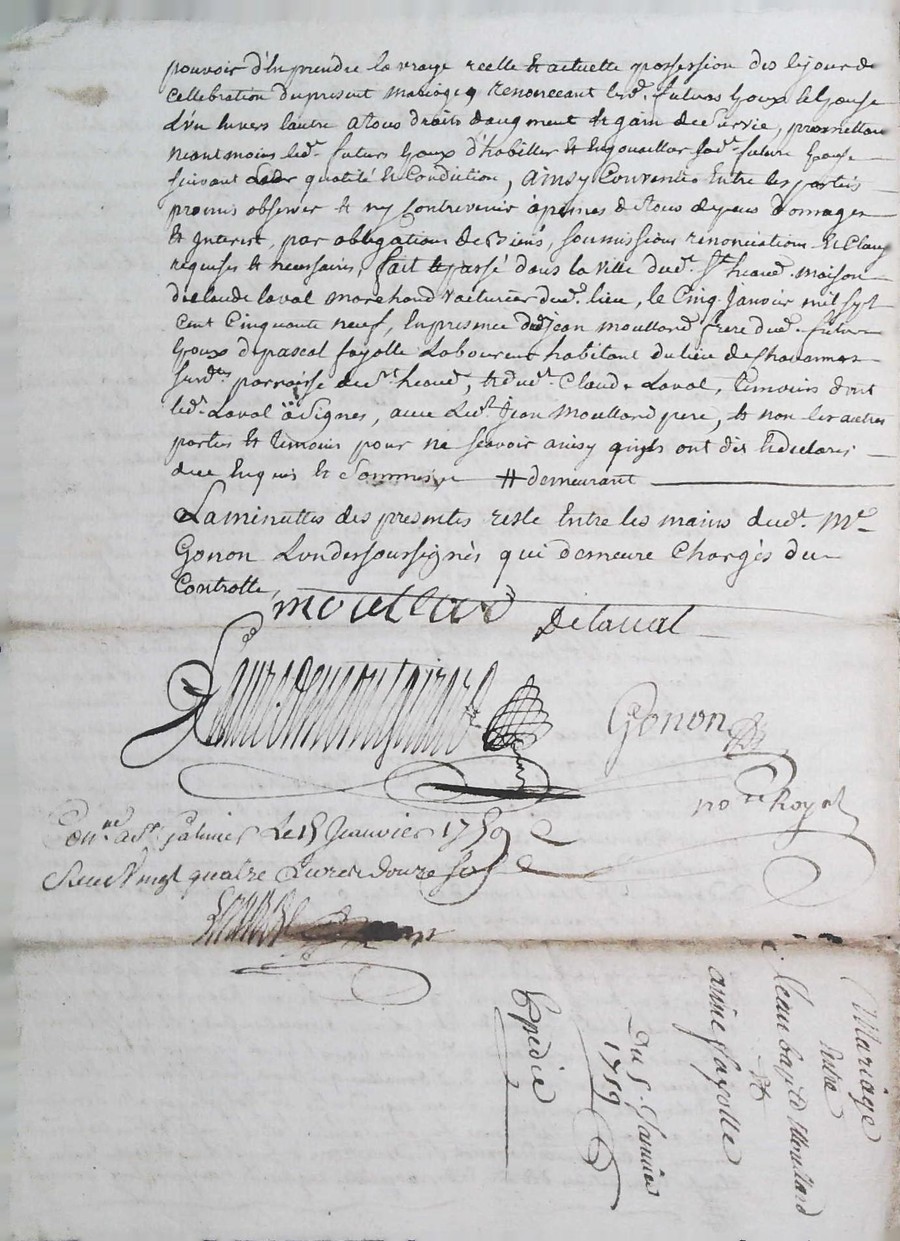 pouvoir d'En prendre la vraye reelle & actuelle possession des le jour de
Cellebration du present mariage, renonceant lesd. futurs Epoux & Epouse
L'un Envers l'autre a tous droits d'augment & gain de survie, promettan
neantmoins led. futurs Epoux d'habiller & Enjouailler lad. future Epouse
suivant leur qualité & Condiction, ainsy Convenu Entre les parties
promis observer & ny Contrevenir à peines de tous depens Domages
& Interest, par obligation de Biens, soumissions renonciations & Claus
requises & necessaires, fait & passé dans la ville dud. St heand maison
de Claude laval marchand voiturier dud. lieu, le Cinq Janvier mil sept
Cent Cinquante neuf, En presence de jean moullard frere dud. futur
Epoux de pascal fayolle Laboureur habitant du lieu de
surd. parroisse de St heand, & dud. Claude Laval, temoins dont
led. Laval à signés, avec led. Jean Moullard pere, & non les autres
parties & temoins pour ne scavoir ainsy quils ont dit & declarés
de ce Enquis & Sommés # demeurant
La minuttes des presentes reste Entre les mains dud. Me
Gonon L'un des soussignés qui demeure Chargés du
Controlle,
moullard Delaval
Gonon
nore Royal
Conné a St galmier Le 15 Janvier 1759
Receu Vingt quatre Livres douze sols
Mariage
Entre
Jean bapte Moullard
&
anne fayolle
Du 5 Janvier
1759
Expedié